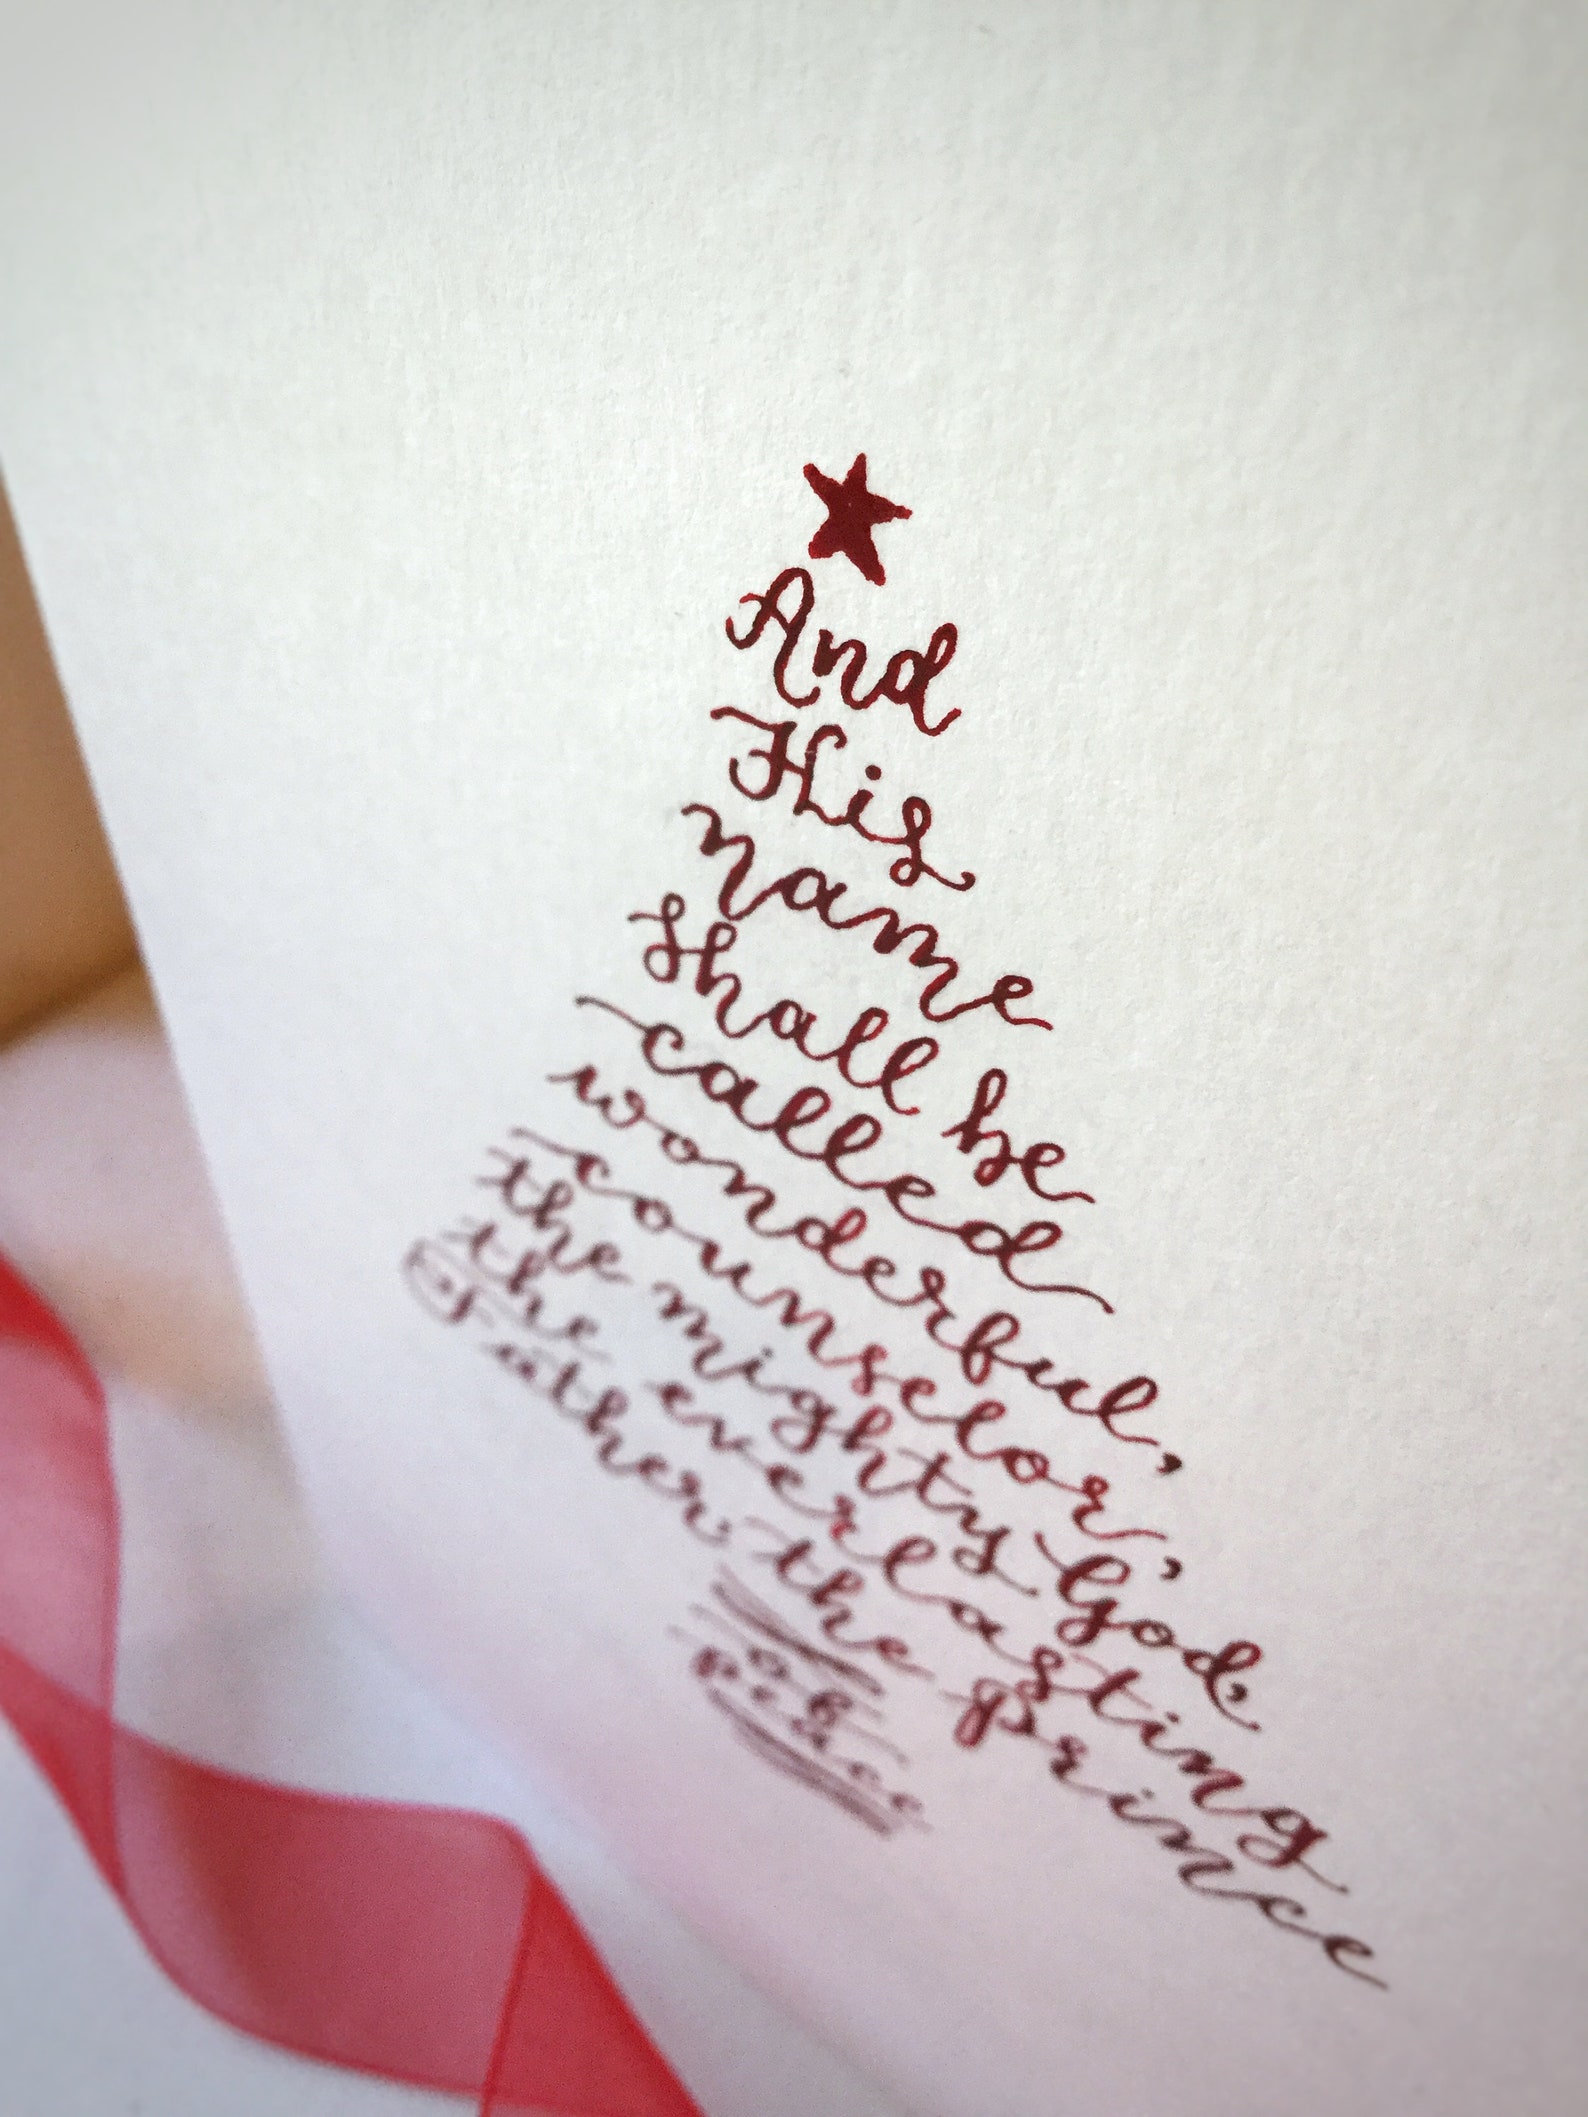 And
His
name
shall be
called
wonderful,
counselor,
the mighty God,
the everlasting
Father the Prince
of
Peace